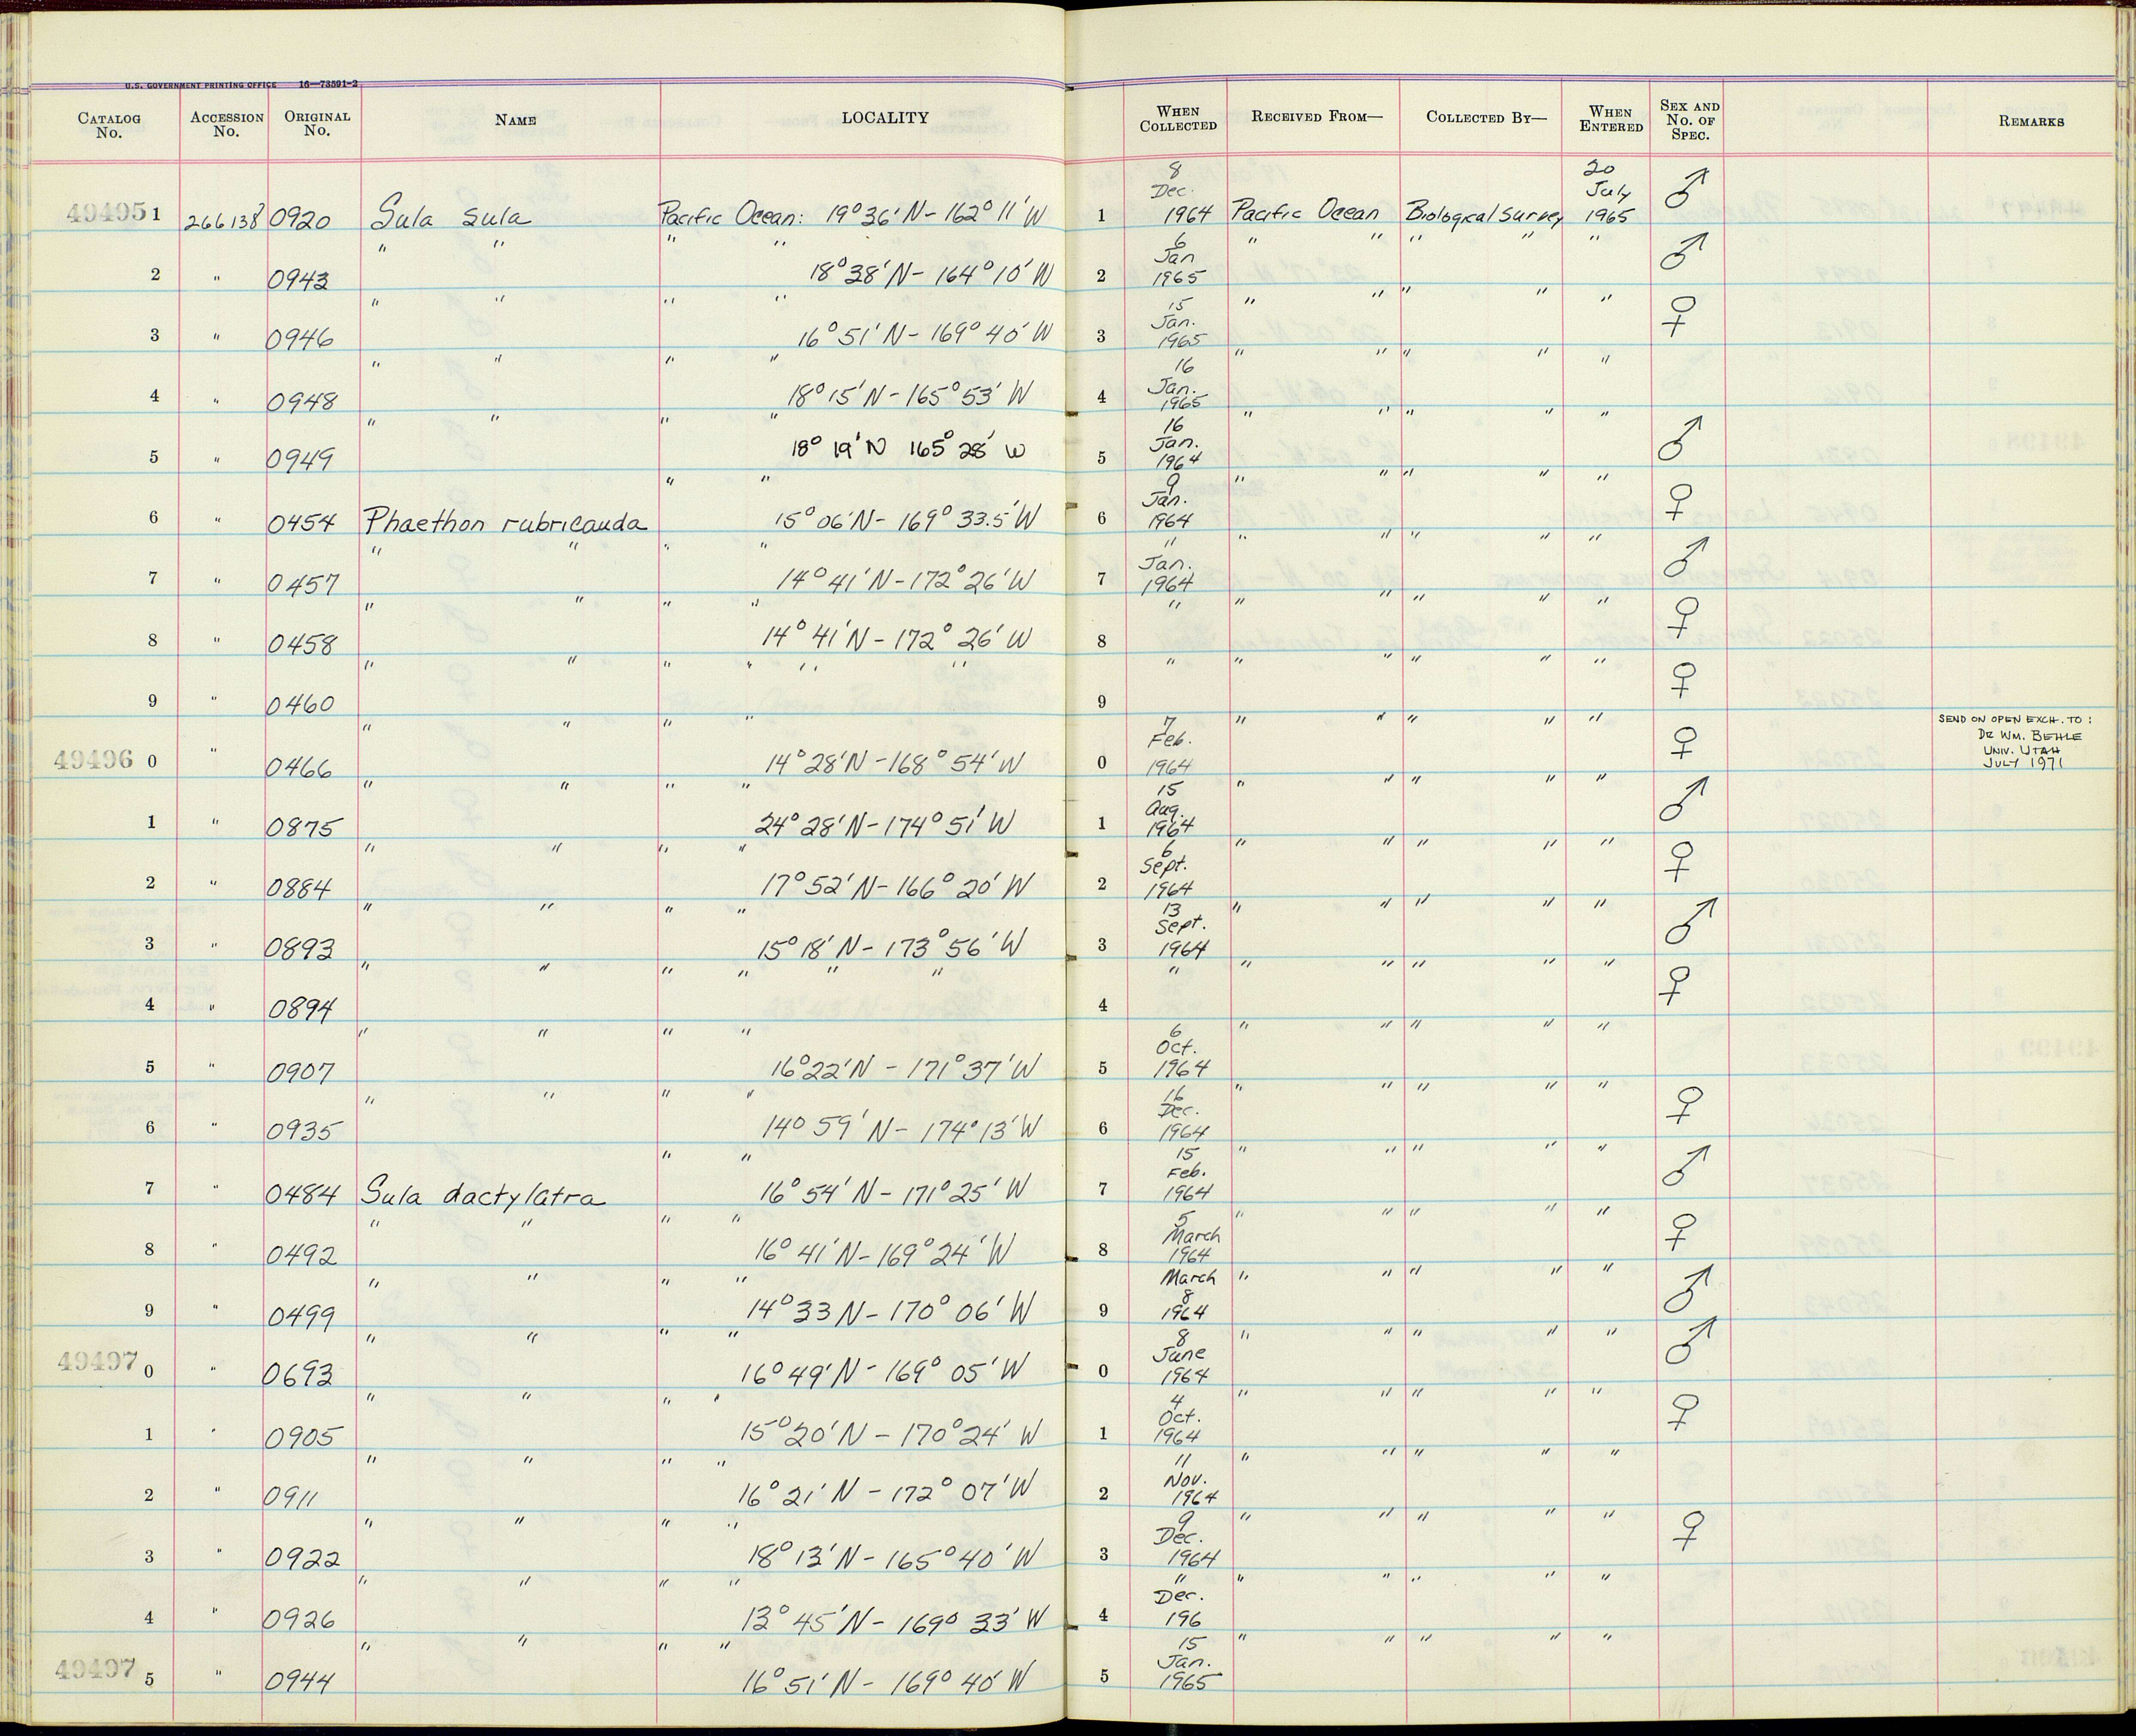 U.S. GOVERNMENT PRINTING OFFICE 16—73591-2
CATALOG No. ACCESSION No. ORIGINAL No. NAME LOCALITY WHEN COLLECTED RECEIVED FROM— COLLECTED BY— WHEN ENTERED SEX AND No. OF SPEC. REMARKS
49495 1 266138 0920 Sula sula Pacific Ocean: 19° 36' N - 162° 11' W 1 8 Dec. 1964 Pacific Ocean Biological Survey 20 July 1965 ♂
2 " 0943 " " " " 18° 38' N - 164° 10' W 2 6 Jan 1965 " " " " " ♂
3 " 0946 " " " " 16° 51' N - 169° 40' W 3 15 Jan. 1965 " " " " " ♀
4 " 0948 " " " " 18° 15' N - 165° 53' W 4 16 Jan. 1965 " " " " "
5 " 0949 " " " " 18° 19' N 165° 28' W 5 16 Jan. 1964 " " " " " ♂
6 " 0454 Phaethon rubricauda " " 15° 06' N - 169° 33.5' W 6 9 Jan. 1964 " " " " " ♀
7 " 0457 " " " " 14° 41' N - 172° 26' W 7 11 Jan. 1964 " " " " " ♂
8 " 0458 " " " " 14° 41' N - 172° 26' W 8 " " " " " " ♀
9 " 0460 " " " " " " 9 " " " " " " ♀
49496 0 " 0466 " " " " 14° 28' N - 168° 54' W 0 7 Feb. 1964 " " " " " ♀ SEND ON OPEN EXCH. TO: DR WM. BEHLE UNIV. UTAH JULY 1971
1 " 0875 " " " " 24° 28' N - 174° 51' W 1 15 Aug. 1964 " " " " " ♂
2 " 0884 " " " " 17° 52' N - 166° 20' W 2 6 Sept. 1964 " " " " " ♀
3 " 0893 " " " " 15° 18' N - 173° 56' W 3 13 Sept. 1964 " " " " " ♂
4 " 0894 " " " " " " 4 " " " " " " ♀
5 " 0907 " " " " 16° 22' N - 171° 37' W 5 6 Oct. 1964 " " " " "
6 " 0935 " " " " 14° 59' N - 174° 13' W 6 16 Dec. 1964 " " " " " ♀
7 " 0484 Sula dactylatra " " 16° 54' N - 171° 25' W 7 15 Feb. 1964 " " " " " ♂
8 " 0492 " " " " 16° 41' N - 169° 24' W 8 5 March 1964 " " " " " ♀
9 " 0499 " " " " 14° 33 N - 170° 06' W 9 March 8 1964 " " " " " ♂
49497 0 " 0693 " " " " 16° 49' N - 169° 05' W 0 8 June 1964 " " " " " ♂
1 " 0905 " " " " 15° 20' N - 170° 24' W 1 4 Oct. 1964 " " " " " ♀
2 " 0911 " " " " 16° 21' N - 172° 07' W 2 11 Nov. 1964 " " " " "
3 " 0922 " " " " 18° 13' N - 165° 40' W 3 9 Dec. 1964 " " " " " ♀
4 " 0926 " " " " 13° 45' N - 169° 33' W 4 11 Dec. 196 " " " " "
49497 5 " 0944 " " " " 16° 51' N - 169° 40' W 5 15 Jan. 1965 " " " " "